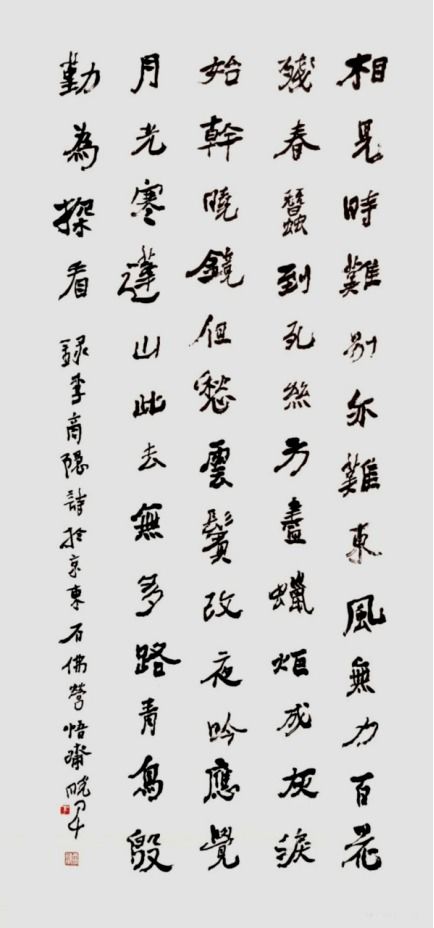 相見時難別亦難東風無力百花
殘春蠶到死絲方盡蠟炬成灰淚
始幹曉鏡但愁雲鬢改夜吟應覺
月光寒蓬山此去無多路青鳥殷
勤為探看 錄李商隱詩於京東石佛營悟齋